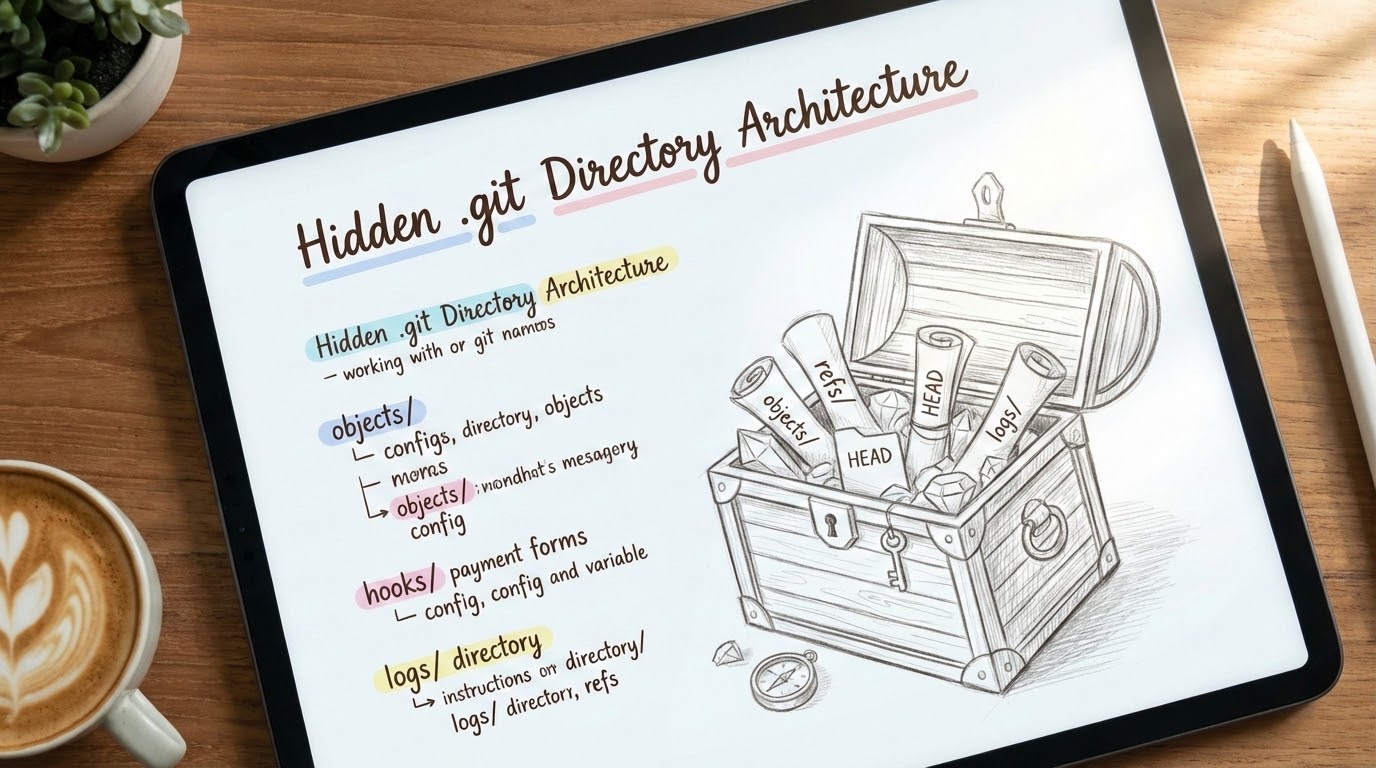 Hidden .git Directory Architecture
Hidden .git Directory Architecture
– working with or git
objects/
configs, directory, objects
objects/
config
hooks/ payment forms
config, config and variable
logs/ directory
instructions directory/
logs/ directory, refs
objects/
refs/
HEAD
HEAD
logs/